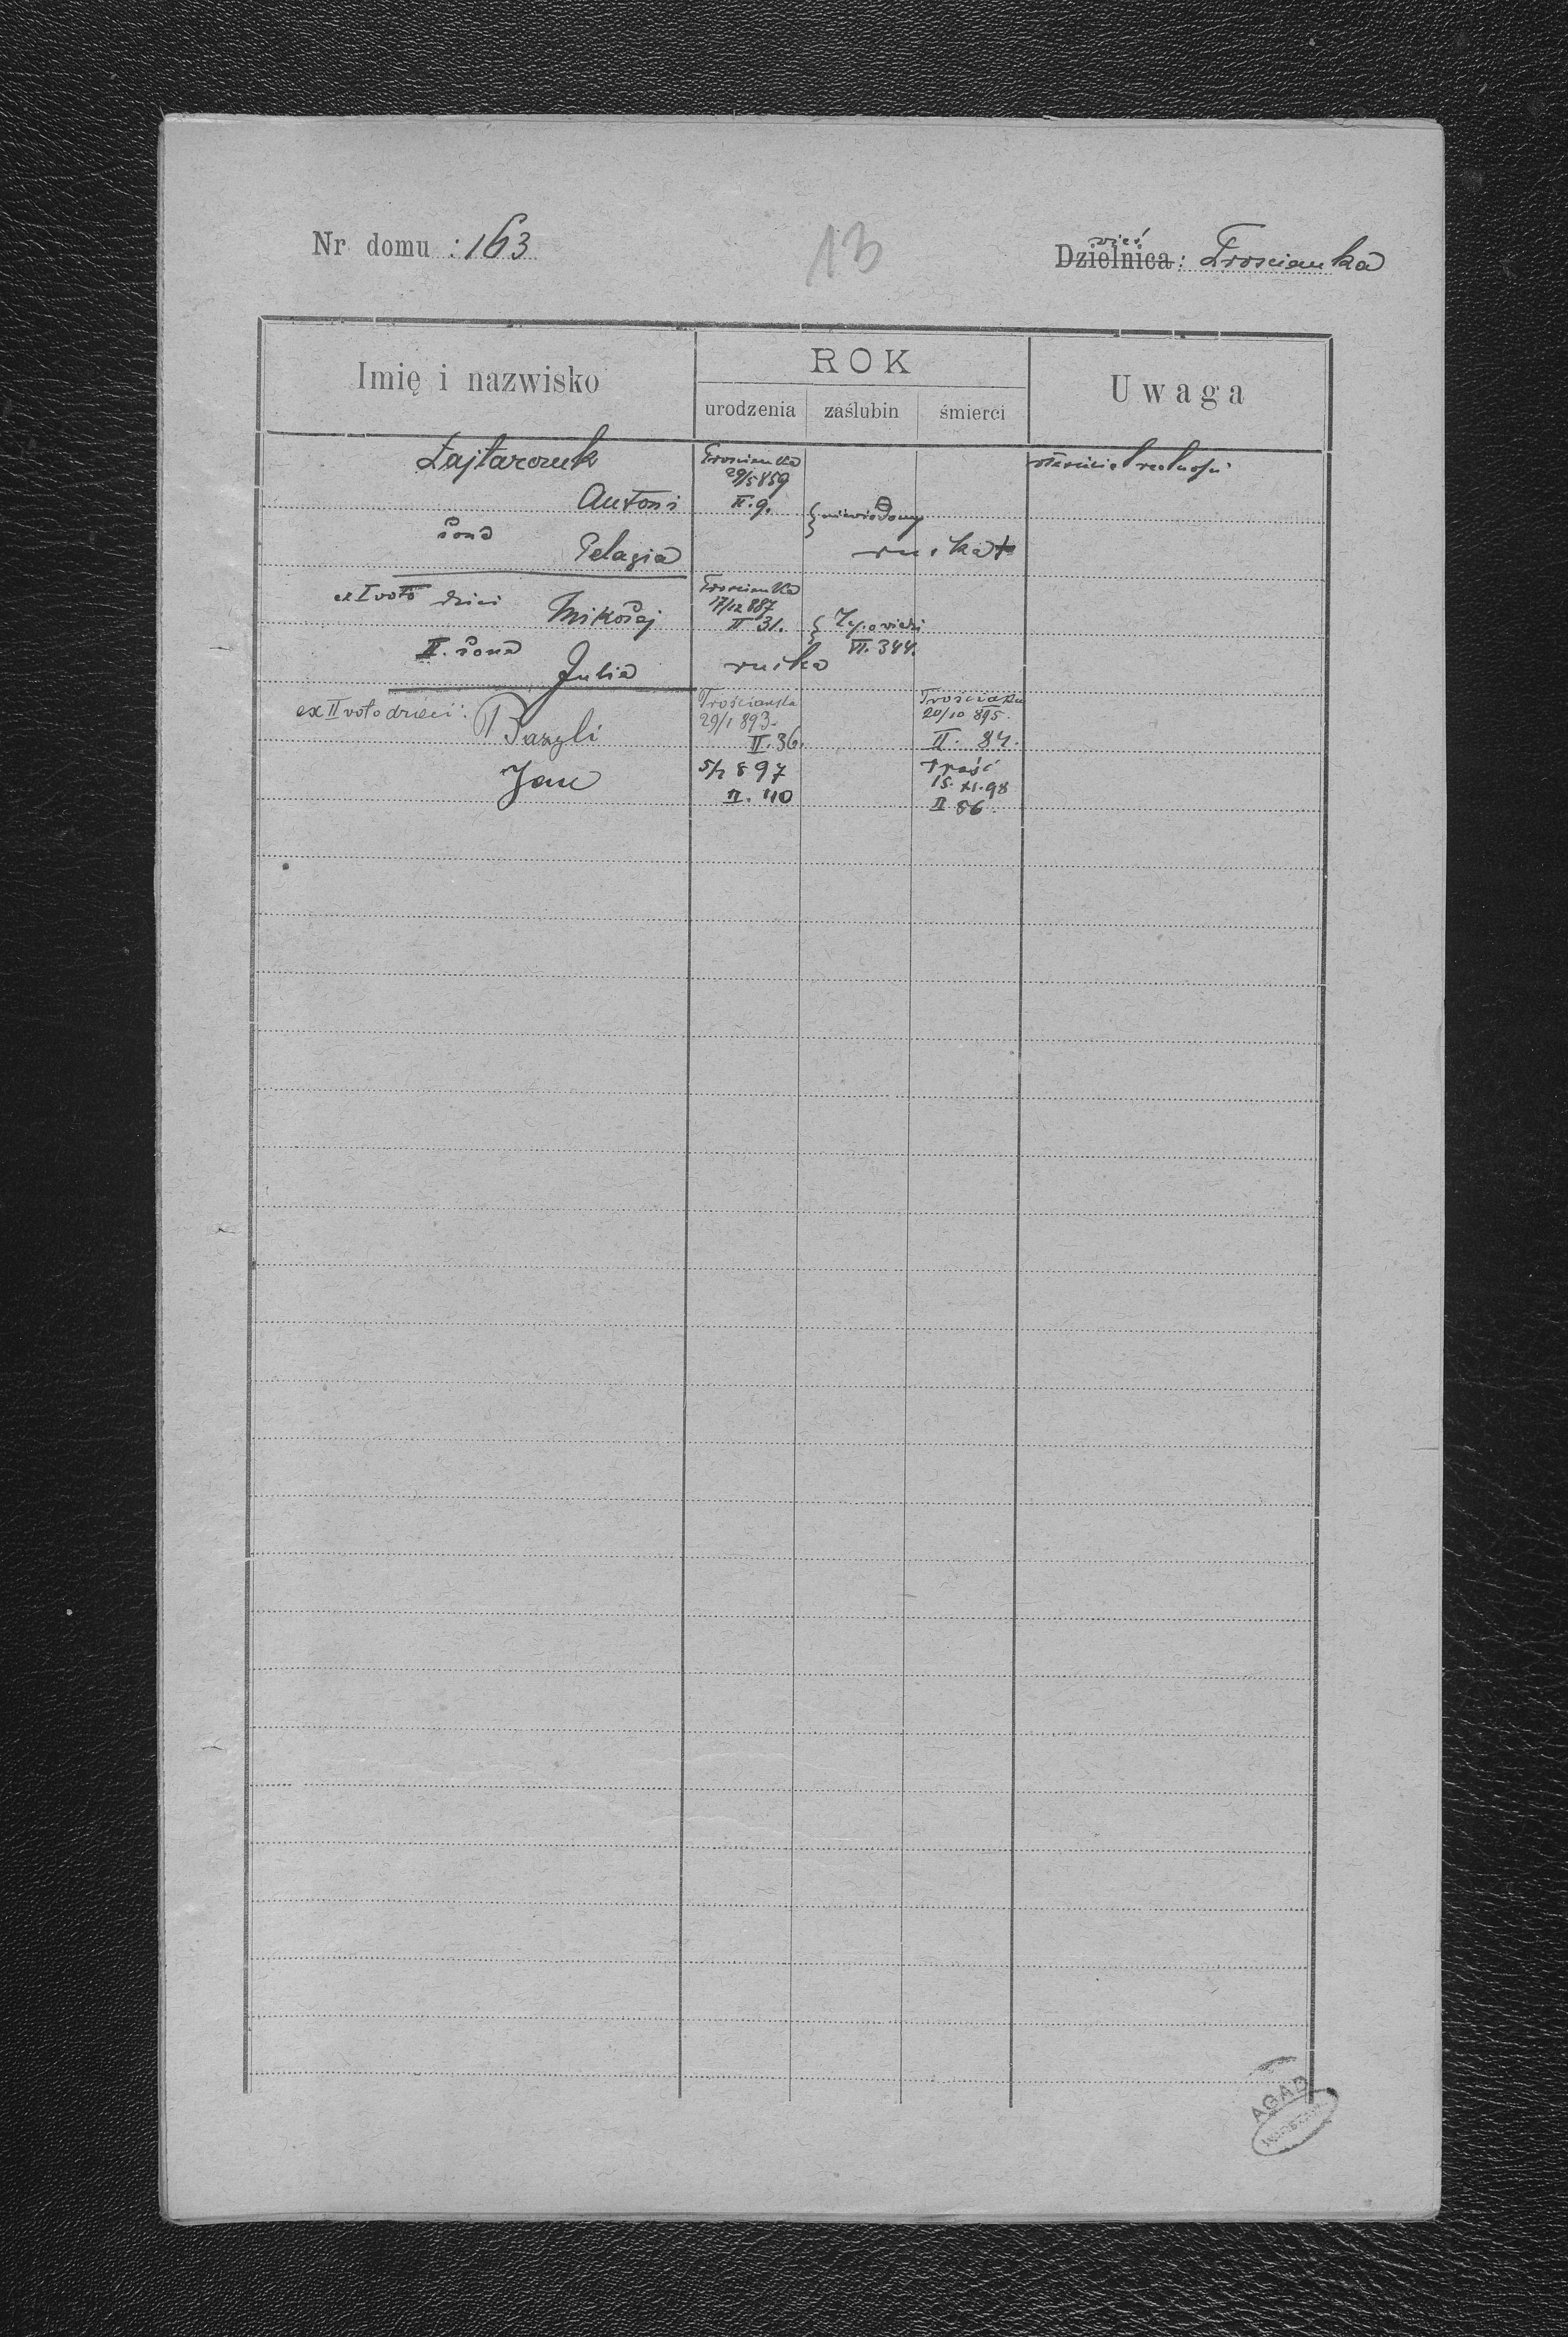 Nr domu : 163
13
wieś
Dzielnica : Trościanka
Imię i nazwisko
ROK
urodzenia
zaślubin
śmierci
Uwaga
Łajtarczuk
Trościanka
29/5 859
Antoni
II. 9.
niewiadomy
żona
Pelagia
rusika +
ex I voto dzieci Mikołaj
Trościanka
17/12 887
II 31.
VI. 344.
II. żona
Julia
rusika
ex II voto dzieci: Bazyli
Trościanka
29/1 893.
II. 36.
20/10 895.
II. 84.
Jan
5/2 897
II. 40
Trość
15. XI. 98
II 86.
AGAD